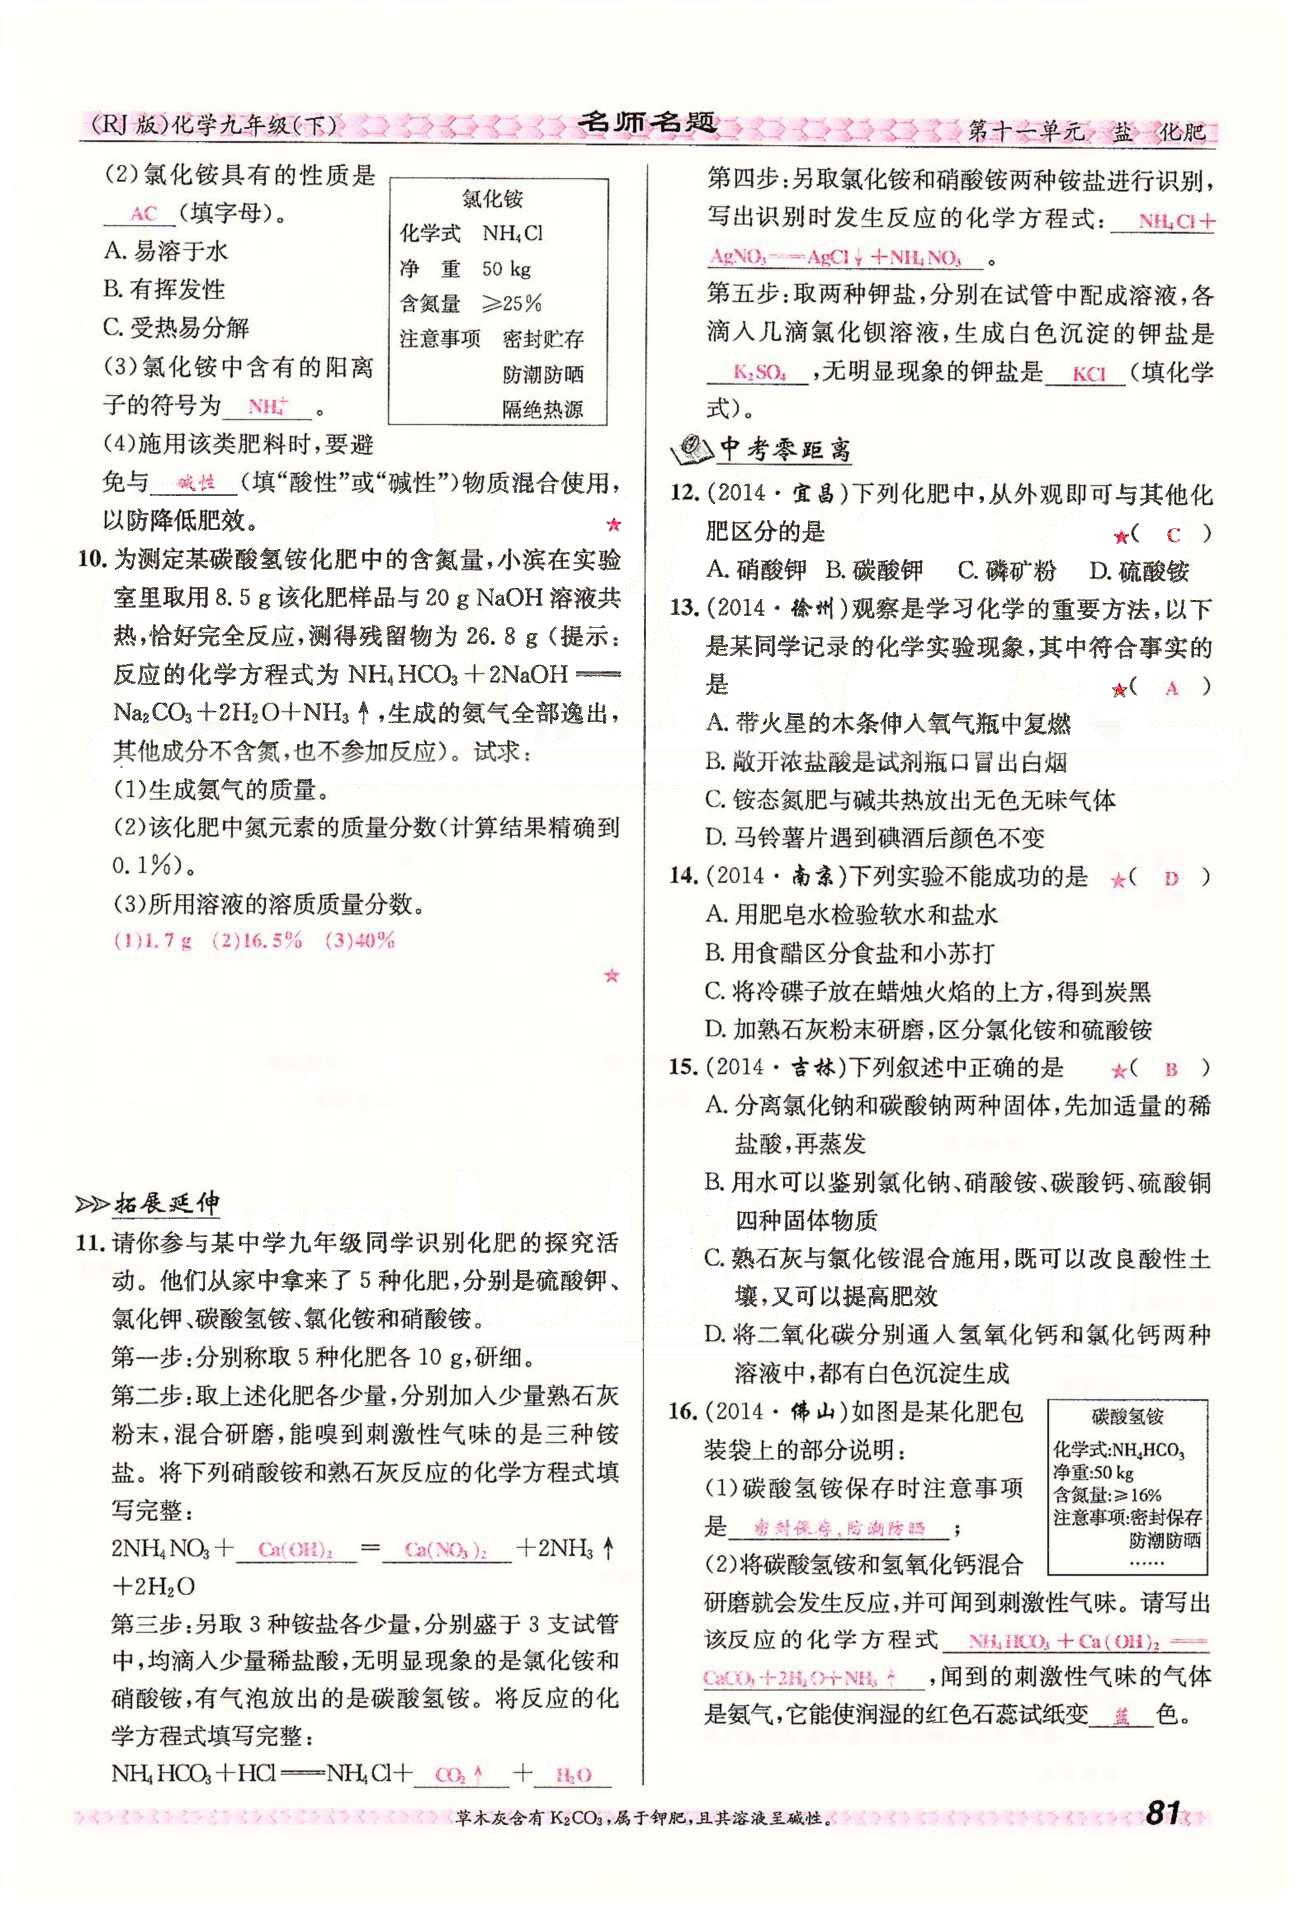 (RJ版)化学九年级(下)
名师名题
第十一单元 盐 化肥
(2)氯化铵具有的性质是
AC (填字母)。
A. 易溶于水
B. 有挥发性
C. 受热易分解
(3)氯化铵中含有的阳离
子的符号为 NH₄⁺ 。
(4)施用该类肥料时,要避
免与 碱性 (填“酸性”或“碱性”)物质混合使用,
以防降低肥效。 ★
氯化铵
化学式 NH₄Cl
净 重 50 kg
含氮量 ≥25%
注意事项 密封贮存
防潮防晒
隔绝热源
10. 为测定某碳酸氢铵化肥中的含氮量,小滨在实验
室里取用8.5 g该化肥样品与20 g NaOH溶液共
热,恰好完全反应,测得残留物为 26.8 g (提示:
反应的化学方程式为 NH₄HCO₃+2NaOH══
Na₂CO₃+2H₂O+NH₃↑,生成的氨气全部逸出,
其他成分不含氮,也不参加反应)。试求:
(1)生成氨气的质量。
(2)该化肥中氮元素的质量分数(计算结果精确到
0.1%)。
(3)所用溶液的溶质质量分数。
(1)1.7 g (2)16.5% (3)40%
★
拓展延伸
11. 请你参与某中学九年级同学识别化肥的探究活
动。他们从家中拿来了5种化肥,分别是硫酸钾、
氯化钾、碳酸氢铵、氯化铵和硝酸铵。
第一步:分别称取5种化肥各10 g,研细。
第二步:取上述化肥各少量,分别加入少量熟石灰
粉末,混合研磨,能嗅到刺激性气味的是三种铵
盐。将下列硝酸铵和熟石灰反应的化学方程式填
写完整:
2NH₄NO₃+ Ca(OH)₂ = Ca(NO₃)₂ +2NH₃↑
+2H₂O
第三步:另取3种铵盐各少量,分别盛于3支试管
中,均滴入少量稀盐酸,无明显现象的是氯化铵和
硝酸铵,有气泡放出的是碳酸氢铵。将反应的化
学方程式填写完整:
NH₄HCO₃+HCl══NH₄Cl+ CO₂↑ + H₂O
第四步:另取氯化铵和硝酸铵两种铵盐进行识别,
写出识别时发生反应的化学方程式: NH₄Cl+
AgNO₃══AgCl↓+NH₄NO₃ 。
第五步:取两种钾盐,分别在试管中配成溶液,各
滴入几滴氯化钡溶液,生成白色沉淀的钾盐是
K₂SO₄ ,无明显现象的钾盐是 KCl (填化学
式)。
中考零距离
12. (2014·宜昌)下列化肥中,从外观即可与其他化
肥区分的是 ★( C )
A. 硝酸钾 B. 碳酸钾 C. 磷矿粉 D. 硫酸铵
13. (2014·徐州)观察是学习化学的重要方法,以下
是某同学记录的化学实验现象,其中符合事实的
是 ★( A )
A. 带火星的木条伸入氧气瓶中复燃
B. 敞开浓盐酸是试剂瓶口冒出白烟
C. 铵态氮肥与碱共热放出无色无味气体
D. 马铃薯片遇到碘酒后颜色不变
14. (2014·南京)下列实验不能成功的是 ★( D )
A. 用肥皂水检验软水和盐水
B. 用食醋区分食盐和小苏打
C. 将冷碟子放在蜡烛火焰的上方,得到炭黑
D. 加熟石灰粉末研磨,区分氯化铵和硫酸铵
15. (2014·吉林)下列叙述中正确的是 ★( B )
A. 分离氯化钠和碳酸钠两种固体,先加适量的稀
盐酸,再蒸发
B. 用水可以鉴别氯化钠、硝酸铵、碳酸钙、硫酸铜
四种固体物质
C. 熟石灰与氯化铵混合施用,既可以改良酸性土
壤,又可以提高肥效
D. 将二氧化碳分别通入氢氧化钙和氯化钙两种
溶液中,都有白色沉淀生成
16. (2014·佛山)如图是某化肥包
装袋上的部分说明:
(1)碳酸氢铵保存时注意事项
是 密封保存,防潮防晒 ;
(2)将碳酸氢铵和氢氧化钙混合
研磨就会发生反应,并可闻到刺激性气味。请写出
该反应的化学方程式 NH₄HCO₃+Ca(OH)₂══
CaCO₃+2H₂O+NH₃↑ ,闻到的刺激性气味的气体
是氨气,它能使润湿的红色石蕊试纸变 蓝 色。
碳酸氢铵
化学式:NH₄HCO₃
净重:50 kg
含氮量:≥16%
注意事项:密封保存
防潮防晒
……
草木灰含有K₂CO₃,属于钾肥,且其溶液呈碱性。
81